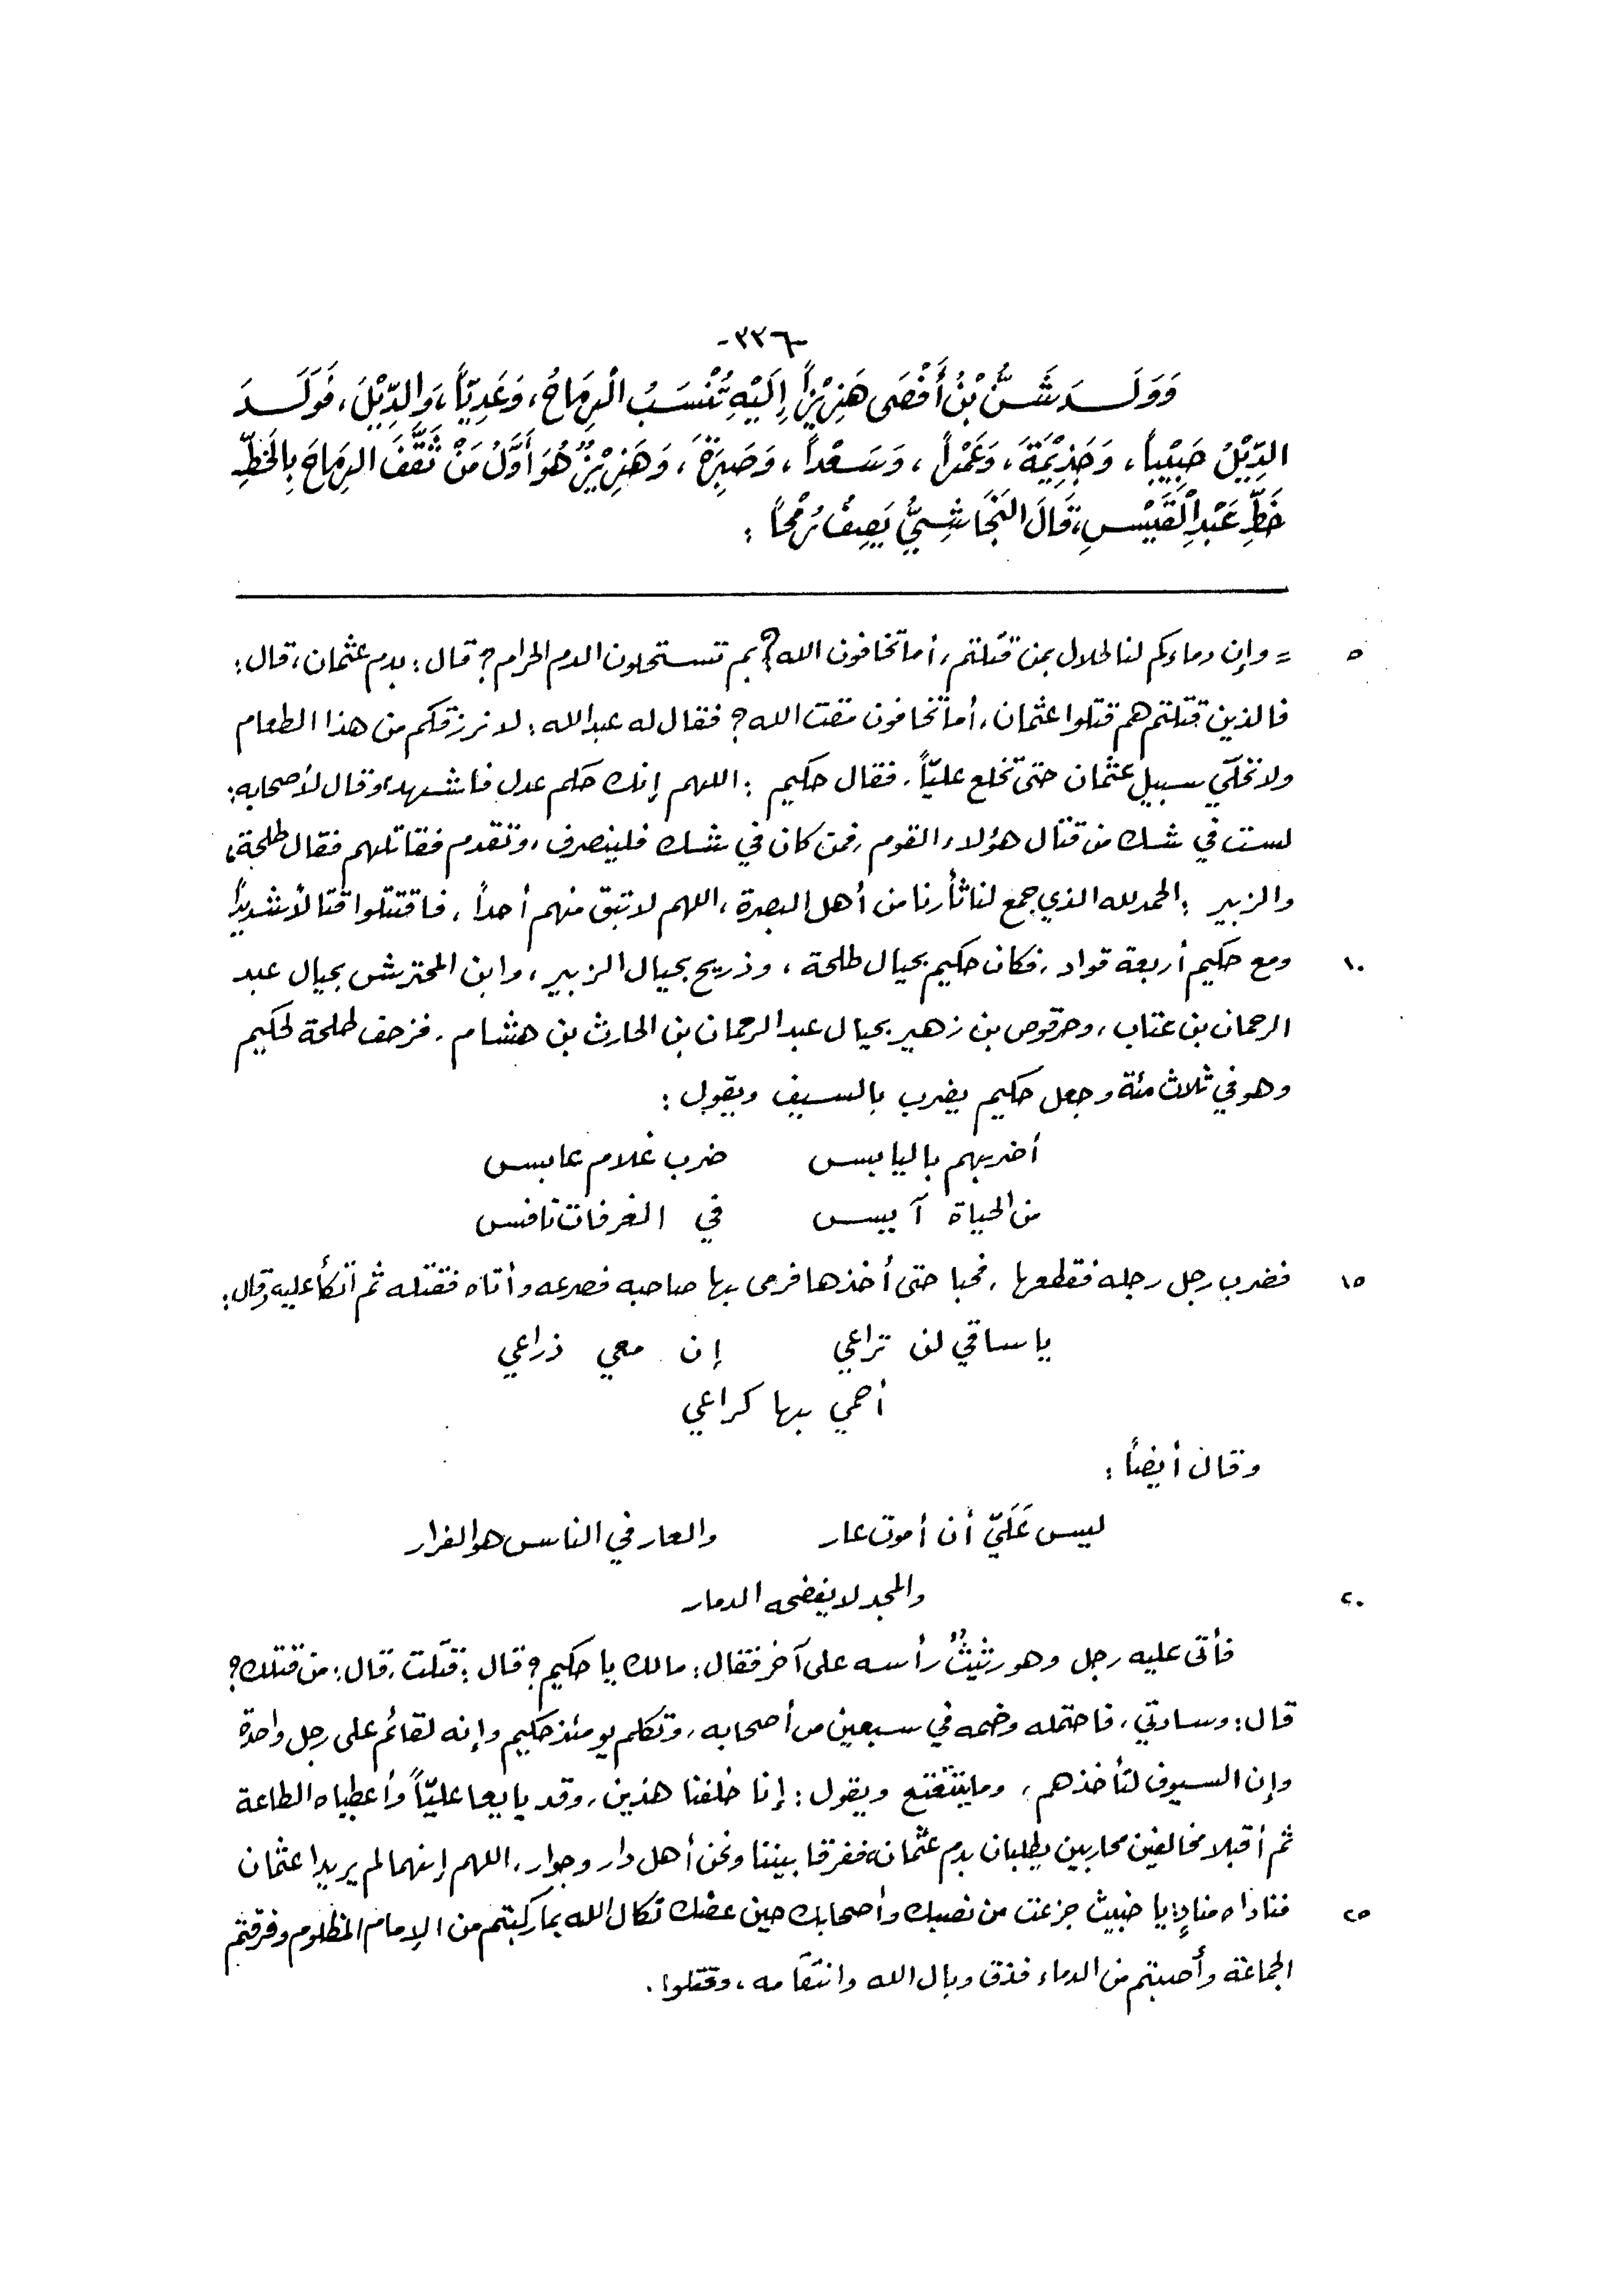 -٣٣٦-
وَوَلَـــدَ شَـــنُّ بْنُ أَفْصَى هَزِيْزاً إِلَيْهِ تُنْسَبُ الْرِمَاحُ، وَعَدِيّاً، وَالدِّيْلَ، فَوَلَــدَ
الدِّيْلُ حَبِيْباً، وَجَذِيْمَةَ، وَعَمْراً، وَسَعْداً، وَصَبِرَةَ، وَهَزِيْزٌ هُوَ أَوَّلُ مَنْ ثَقَّفَ الرِمَاحَ بِالخَطِّ
خَطِّ عَبْدِ الْقَيْسِ، قَالَ النَجَاشِيُّ يَصِفُ رُمْحاً:
٥ = وإن دماءكم لنا لحلال بمن قتلتم، أما تخافون الله؟ بم تستحلون الدم الحرام؟ قال: بدم عثمان، قال:
فالذين قتلتم هم قتلوا عثمان، أما تخافون مقت الله؟ فقال له عبدالله: لا نرزقكم من هذا الطعام
ولا نخلّي سبيل عثمان حتى تخلع عليّاً. فقال حكيم: اللهم إنك حكم عدل فاشهد، وقال لأصحابه:
لست في شك من قتال هؤلاء القوم، فمن كان في شك فلينصرف، وتقدم فقاتلهم فقال طلحة
والزبير: الحمد لله الذي جمع لنا ثأرنا من أهل البصرة، اللهم لا تبق منهم أحداً، فاقتتلوا قتالاً شديداً
١٠ ومع حكيم أربعة قواد، فكان حكيم بحيال طلحة، وذريح بحيال الزبير، وابن المحترش بحيال عبد
الرحمان بن عتاب، وحرقوص بن زهير بحيال عبد الرحمان بن الحارث بن هشام. فزحف طلحة لحكيم
وهو في ثلاث مئة وجعل حكيم يضرب بالسيف ويقول:
أضربهم باليابس ضرب غلام عابس
من الحياة آيس في الغرفات نافس
١٥ فضرب رجل رجله فقطعها، فحبا حتى أخذها فرمى بها صاحبه فصرعه وأتاه فقتله ثم اتكأ عليه وقال:
يا ساقي لن تراعي إن معي ذراعي
أحمي بها كراعي
وقال أيضاً:
ليس عَلَيّ أن أموت عار والعار في الناس هو الفرار
٢٠ والمجد لا يفضحه الدمار
فأتى عليه رجل وهو رثيثٌ رأسه على آخر فقال: مالك يا حكيم؟ قال: قتلت، قال: من قتلك؟
قال: وسادتي، فاحتمله وضمه في سبعين من أصحابه، وتكلم يومئذ حكيم وإنه لقائم على رجل واحدة
وإن السيوف لتأخذهم، وما يتتعتع ويقول: إنا خلفنا هذين، وقد بايعا عليّاً وأعطياه الطاعة
ثم أقبلا مخالفين محاربين يطلبان بدم عثمان، ففرقا بيننا ونحن أهل دار وجوار، اللهم إنهما لم يريدا عثمان
٢٥ فناداه منادٍ: يا خبيث جزعت من نصبك وأصحابك حين عضك نكال الله بما ركبتم من الإمام المظلوم وفرقتم
الجماعة وأصبتم من الدماء فذق وبال الله وانتقامه، وقتلوا.